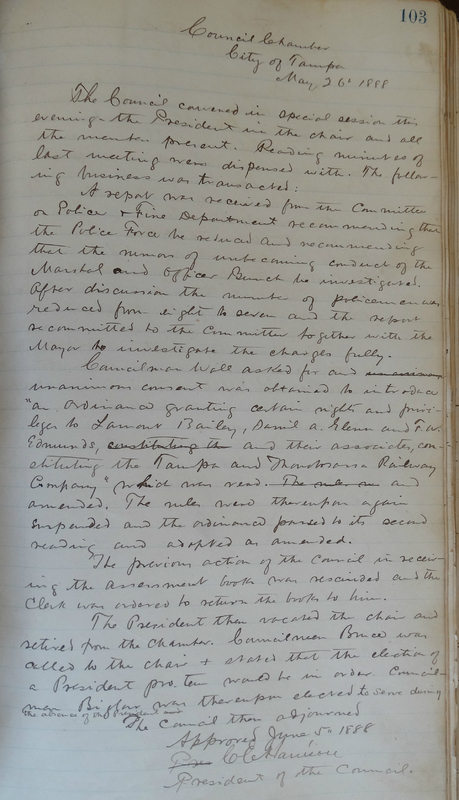 103
Council Chamber
City of Tampa
May, 26th 1888
The Council convened in special session this
evening the President in the chair and all
the members present. Reading minutes of
last meeting were dispensed with. The follow-
ing business was transacted:
A report was received from the Committee
on Police & Fire Department recommending that
the Police Force be reduced and recommending
that the rumors of unbecoming conduct of the
Marshal and Officer Bunch be investigated.
After discussion the number of policemen was
reduced from eight to seven and the report
recommitted to the Committee together with the
Mayor to investigate the charges fully.
Councilman Wall asked for and unanimous
unanimous consent was obtained to introduce
"an Ordinance granting certain rights and privi-
leges to Lamont Bailey, David A. Glenn and T. W.
Edmunds, constituting the and their associates, con-
stituting the Tampa and Thonotosassa Railway
Company" which was read. The rules and
amended. The rules were thereupon again
suspended and the ordinance passed to its second
reading and adopted as amended.
The previous action of the Council in receiv-
ing the assessment books was rescinded and the
Clerk was ordered to return the books to him.
The President then vacated the chair and
retired from the Chamber. Councilman Bruce was
called to the chair & stated that the election of
a President pro. tem would be in order. Council-
man Biglow was thereupon elected to serve during
the absence of the President
The Council then adjourned
Approved June 5th 1888
C C Harrison
President of the Council.